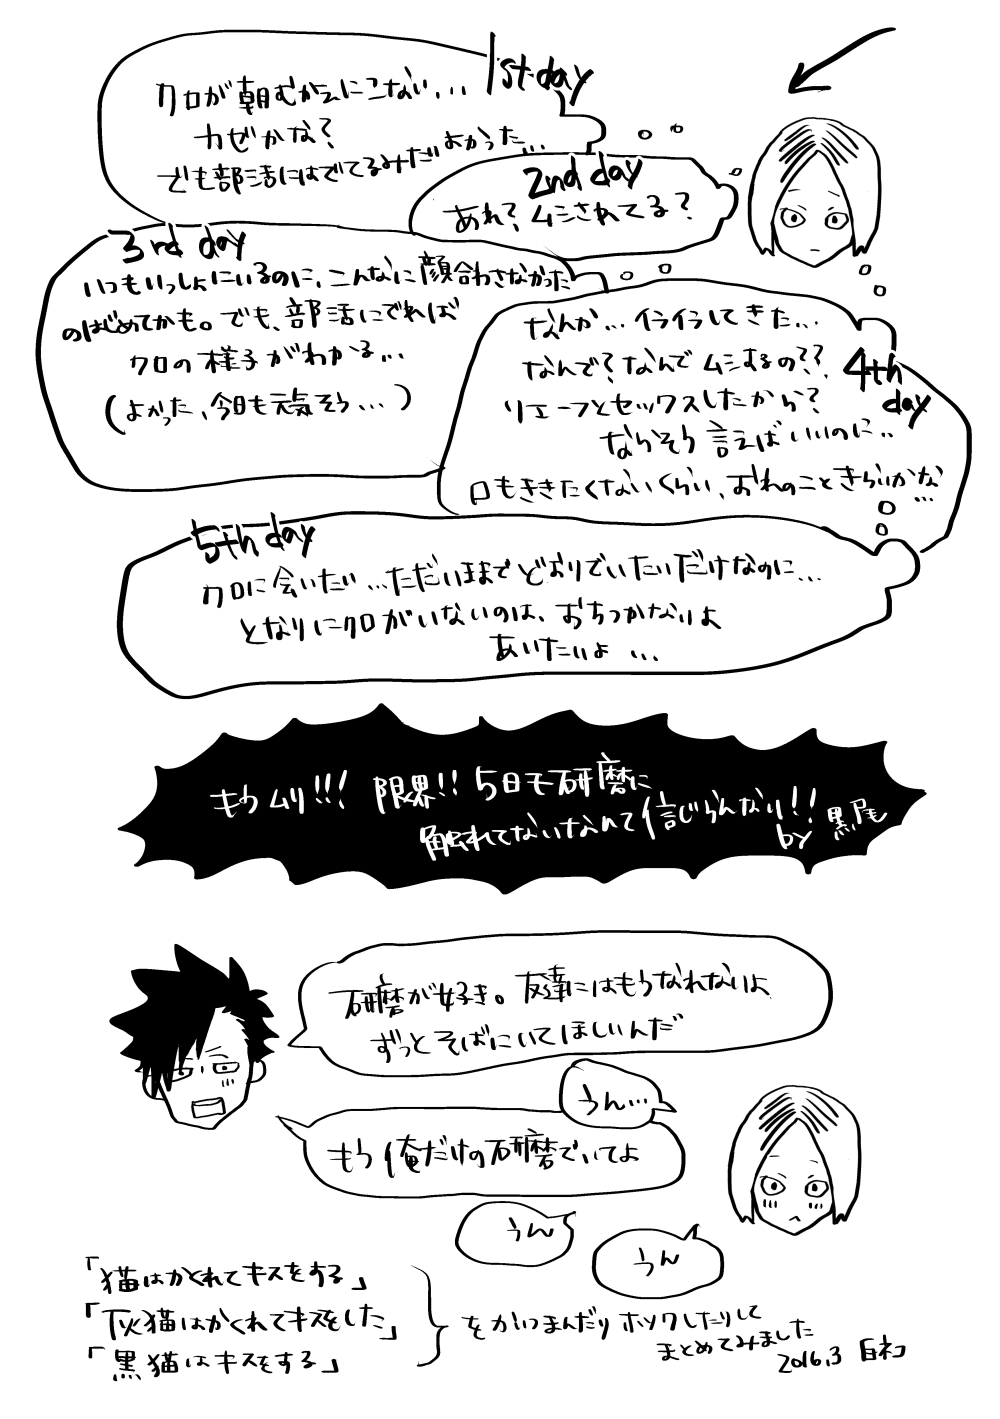 1st day
クロが朝むかえにこない...
カゼかな?
でも部活にはでてるみたいだよかった...
2nd day
あれ?ムシされてる?
3rd day
いつもいっしょにいるのに、こんなに顔合わさなかった
のはじめてかも。でも、部活にでれば
クロの様子がわかる...
(よかった、今日も元気そう...)
4th day
なんか...イライラしてきた...
なんで?なんでムシするの??
リエーフとセックスしたから?
ならそう言えばいいのに..
口もききたくないくらい、おれのこときらいかな...
5th day
クロに会いたい...ただいままでどおりでいたいだけなのに...
となりにクロがいないのは、おちつかないよ
あいたいよ...
もうムリ!!!限界!!5日も研磨に
触れてないなんて信じらんない!!
by 黒尾
研磨が好き。友達にはもうなれないよ
ずっとそばにいてほしいんだ
うん...
もう俺だけの研磨でいてよ
うん
うん
「猫はかくれてキスをする」
「灰猫はかくれてキスをした」
「黒猫はキスをする」
をかいつまんだりホソクしたりして
まとめてみました
2016.3